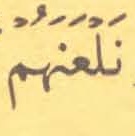 نَلْعَنُهُمْ